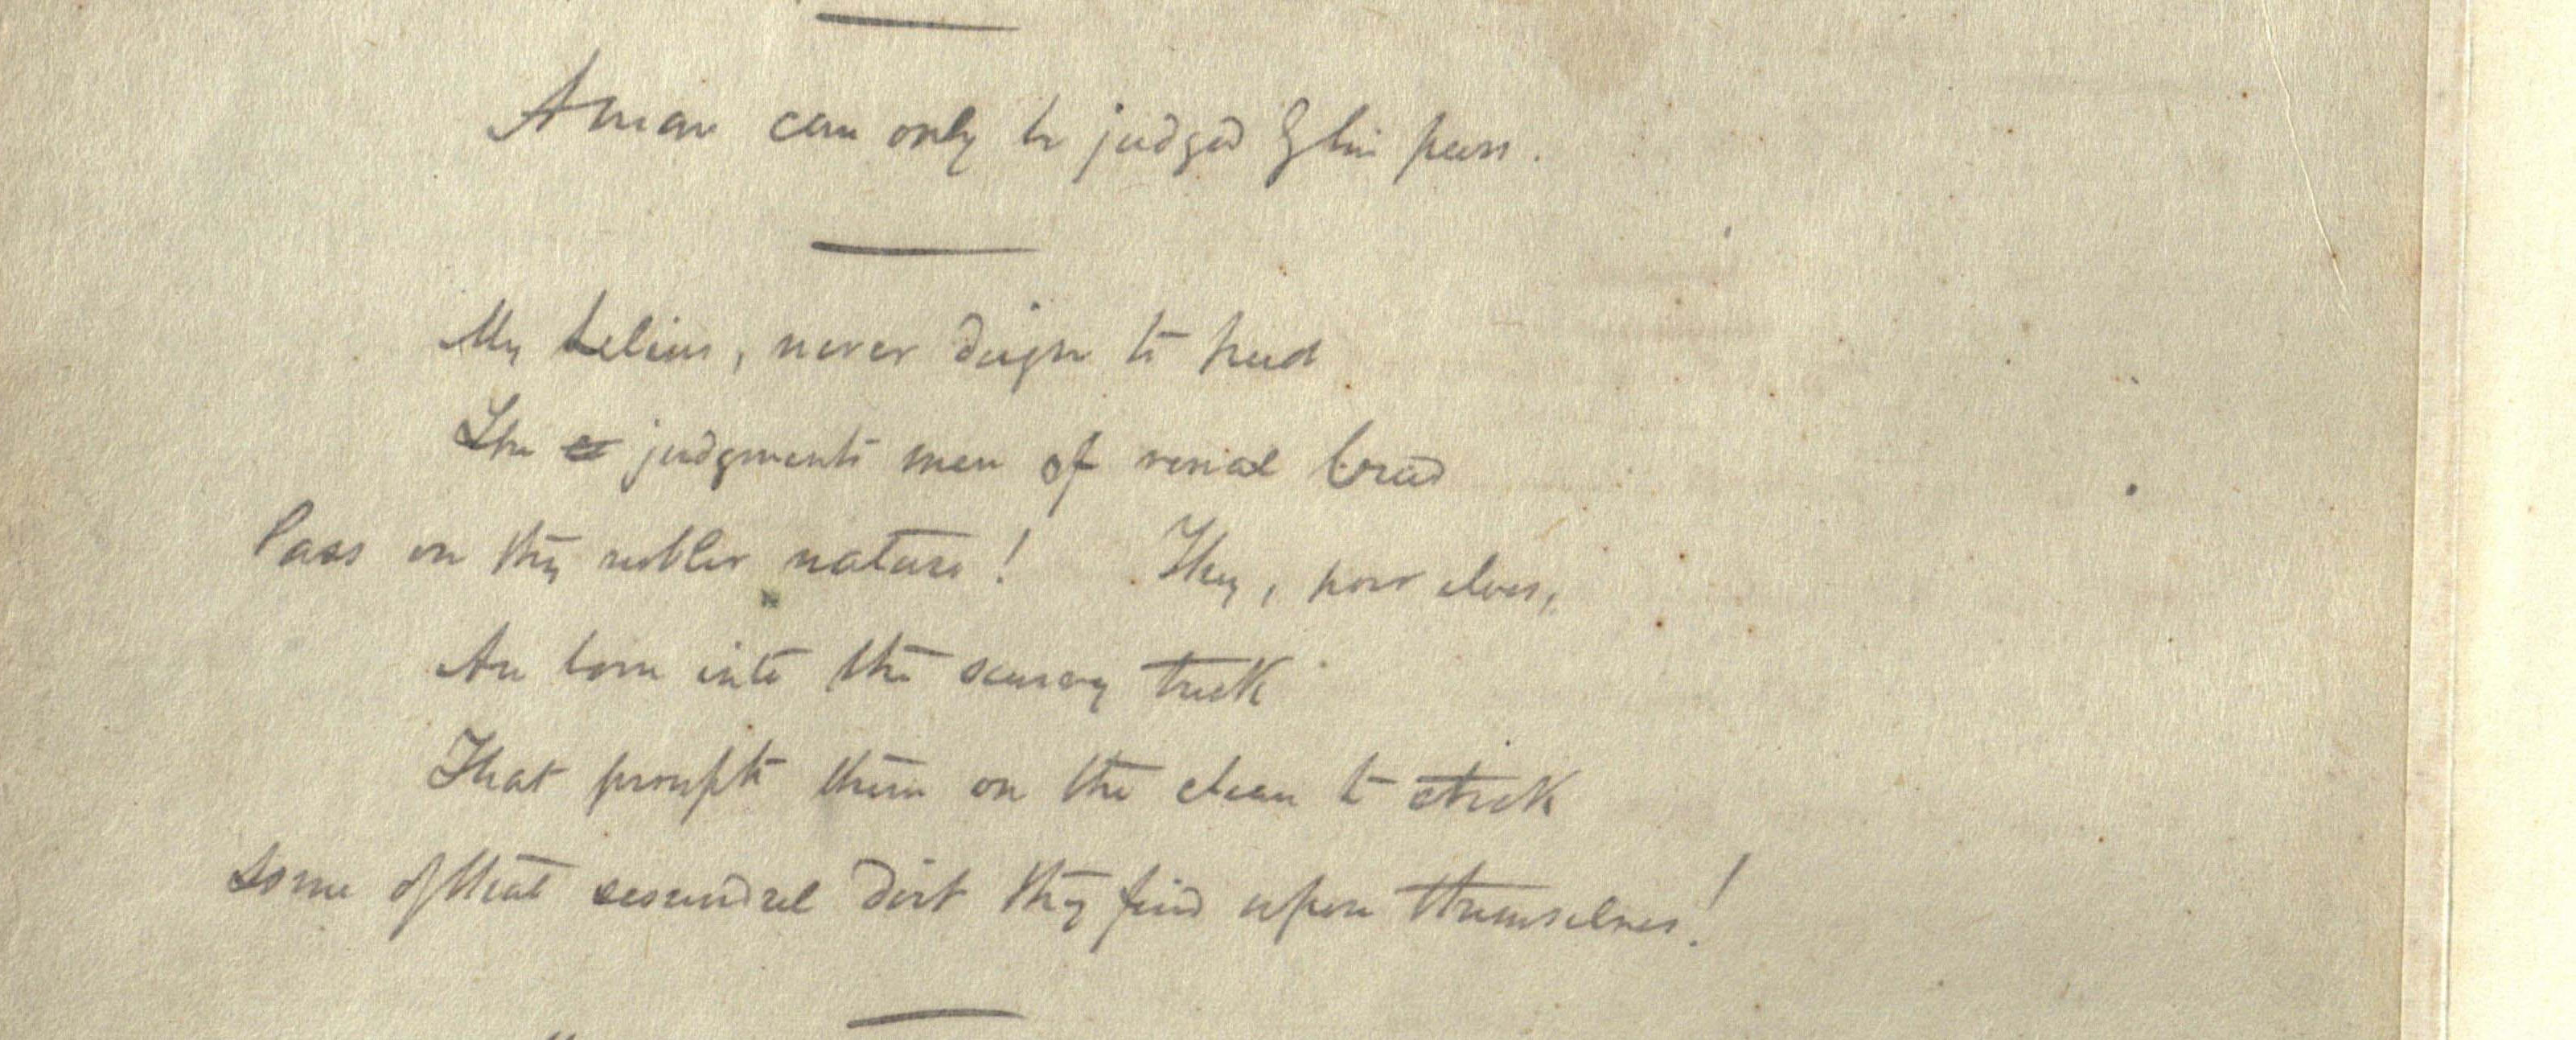 A man can only be judged by his peers.
My Lelius, never deign to heed
The judgments men of venal breed
Pass on thy nobler nature! They, poor elves,
Are born into the scurvy trick
That prompts them on the clean to stick
Some of that scoundrel dirt they find upon themselves!